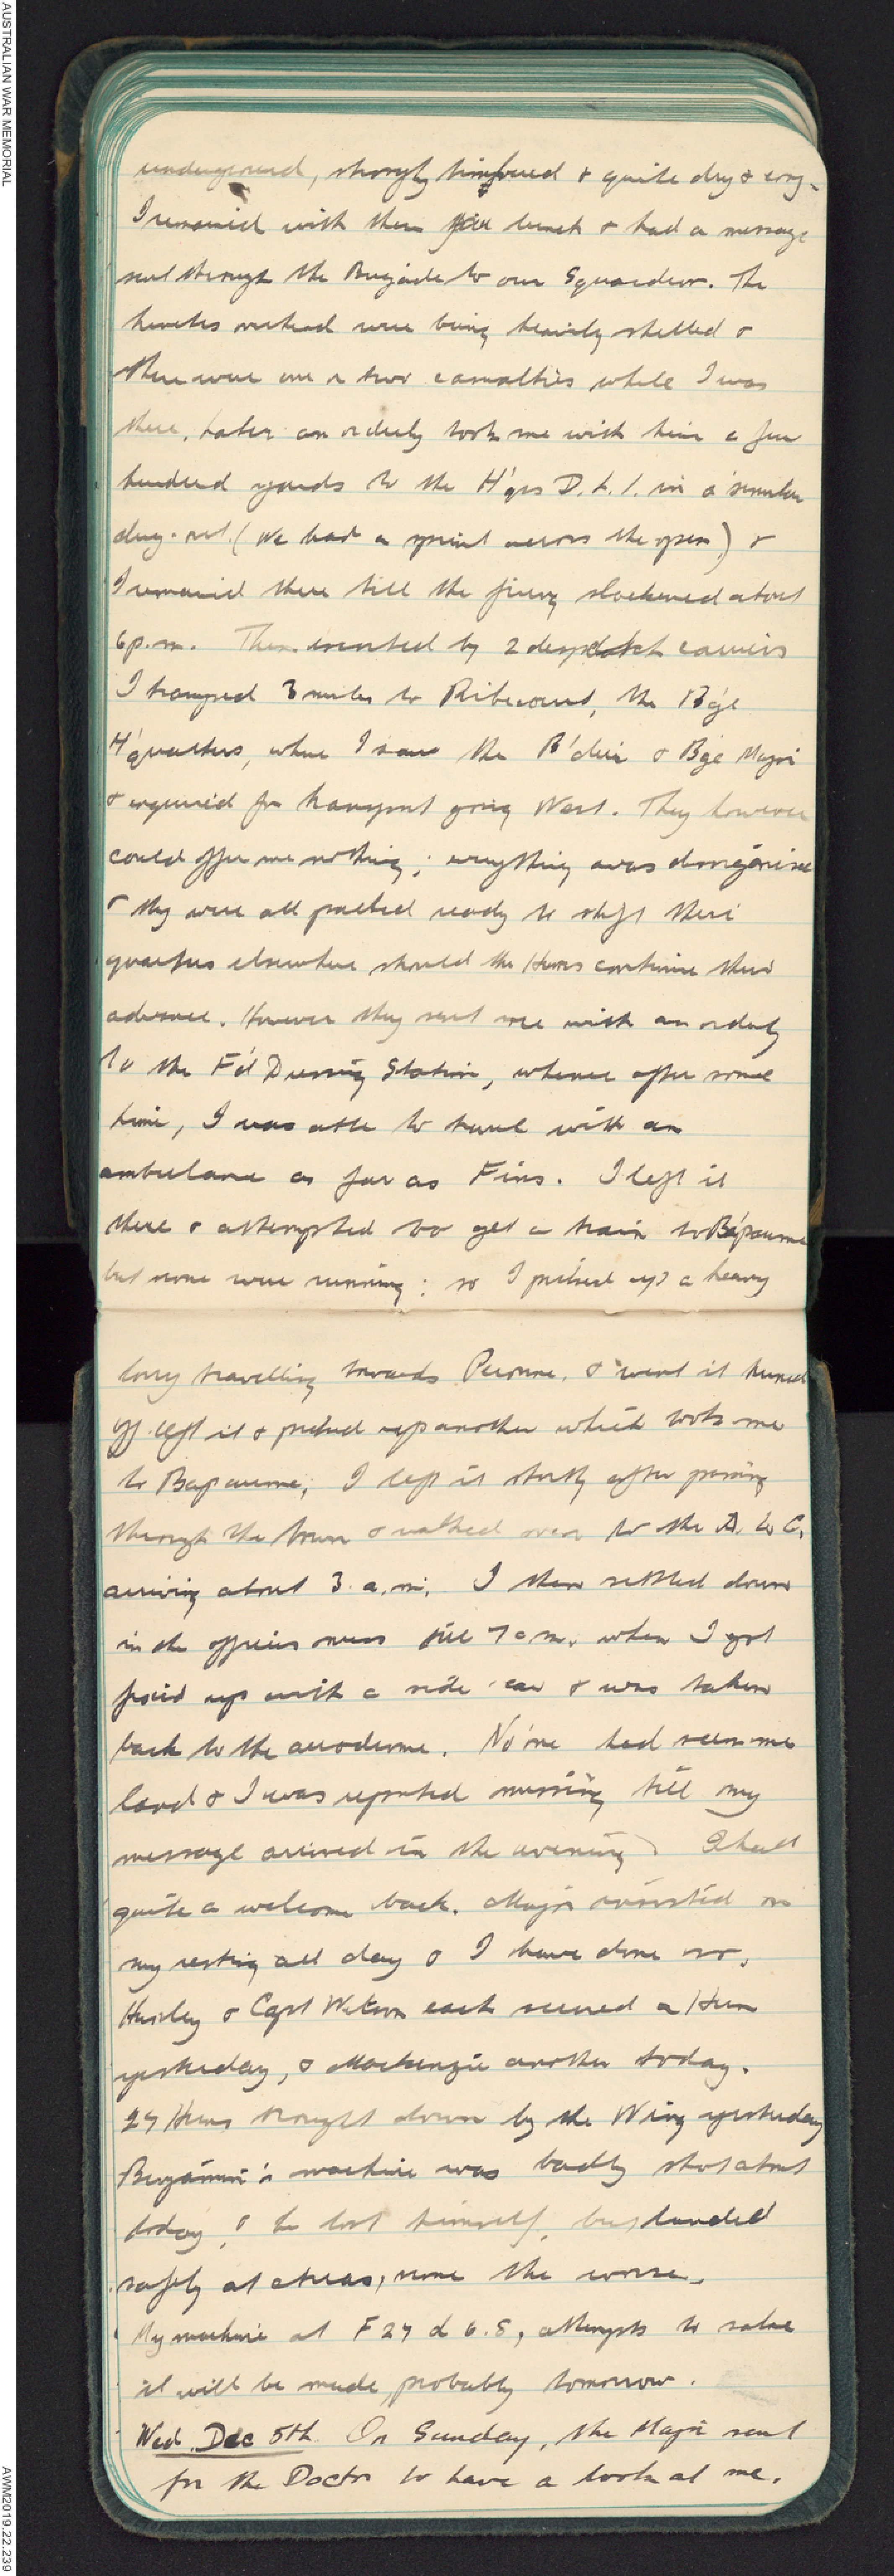 AUSTRALIAN WAR MEMORIAL
underground, strongly timbered & quite dry & cosy.
I remained with them for lunch & had a message
sent through the Brigade to our Squadron. The
trenches overhead were being heavily shelled &
there were one or two casualties while I was
there. Later an orderly took me with him a few
hundred yards to the H'qrs D.L.I. in a similar
dug-out. (We had a sprint across the open) &
I remained there till the firing slackened about
6 p.m. Then escorted by 2 despatch carriers
I tramped 3 miles to Ribecourt, the B'ge
H'quarters, where I saw the B'dier & Bge Major
& enquired for transport going West. They however
could offer me nothing; everything was disorganised
& they were all packed ready to shift their
quarters elsewhere should the Huns continue their
advance. However they sent me with an orderly
to the F'd Dressing Station, whence after some
time, I was able to travel with an
ambulance as far as Fins. I left it
there & attempted to get a train to Bapaume
but none were running; so I picked up a heavy
lorry travelling towards Peronne, & when it turned
off left it & picked up another which took me
to Bapaume, I left it shortly after passing
through the town & walked over to the
arriving about 3 a.m. I then settled down
in the officers mess till 7 a.m. when I got
fixed up with a side car & was taken
back to the aerodrome. No one had seen me
land & I was reported missing till my
message arrived in the evening. I had
quite a welcome back. Major insisted on
my resting all day & I have done so.
Huxley & Capt Wilson each scored a Hun
yesterday, & Mackenzie another today.
27 Huns brought down by the Wing yesterday
Benjamin's machine was badly shot about
today, & he lost himself, but landed
safely at Arras, none the worse.
My machine at F 27 d 6.8, attempts to salve
it will be made, probably tomorrow.
Wed. Dec 5th. On Sunday, the Major sent
for the Doctor to have a look at me.
AWM2019.22.239